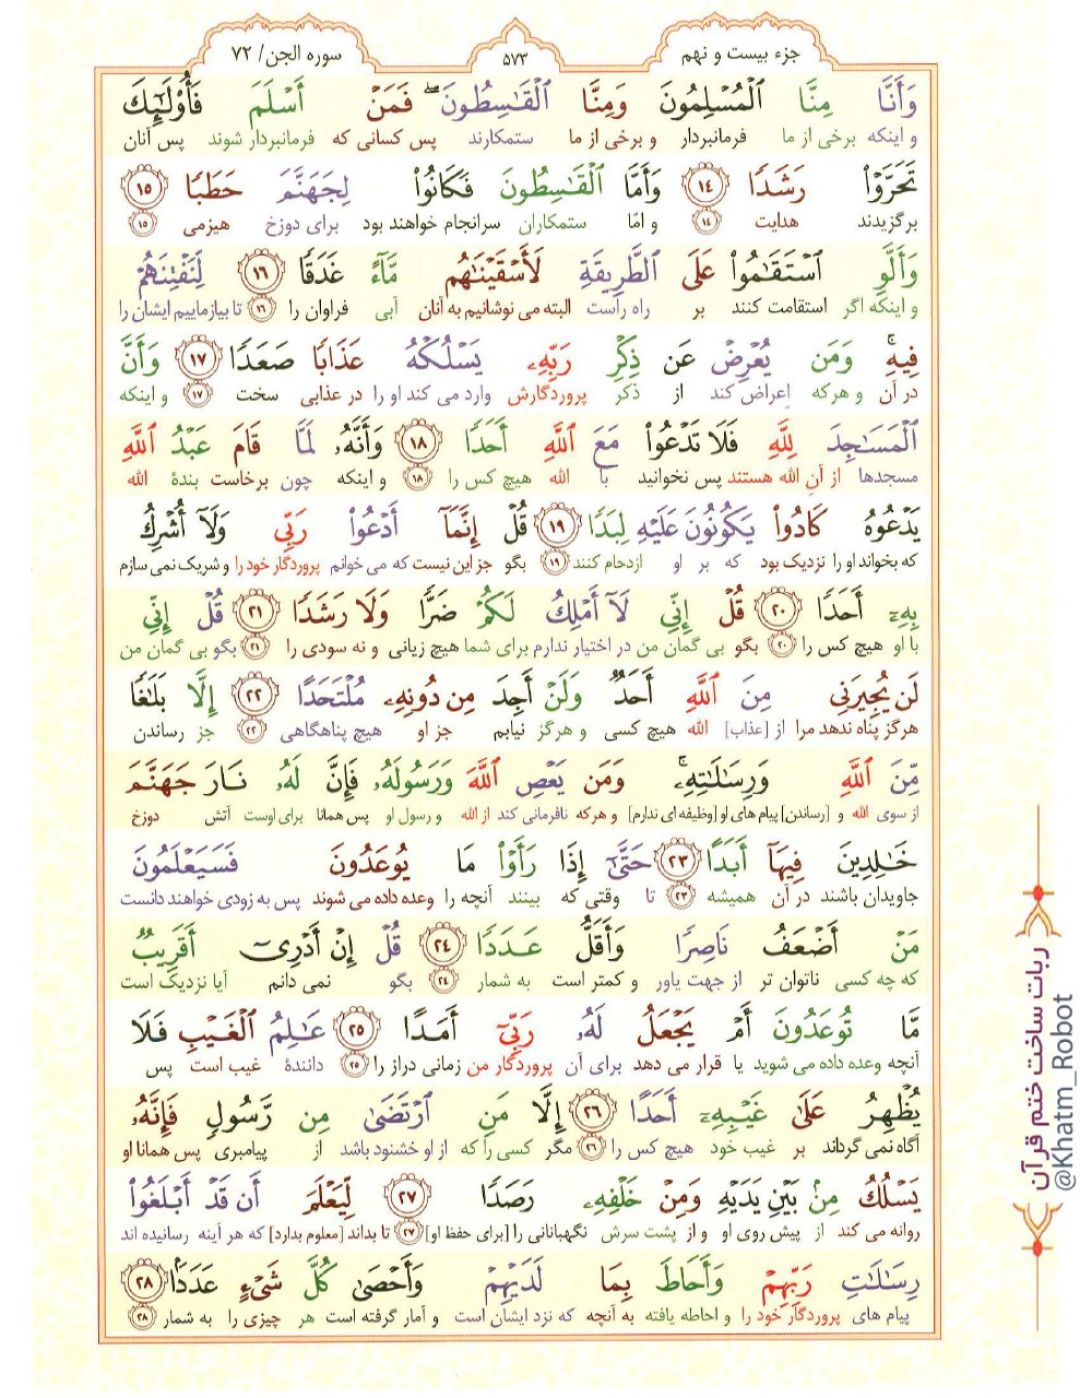 جزء بیست و نهم
۵۷۳
سوره الجن/ ۷۲
وَأَنَّا مِنَّا ٱلْمُسْلِمُونَ وَمِنَّا ٱلْقَـٰسِطُونَ ۖ فَمَنْ أَسْلَمَ فَأُوْلَـٰٓئِكَ
و اینکه برخی از ما فرمانبردار و برخی از ما ستمکارند پس کسانی که فرمانبردار شوند پس آنان
تَحَرَّوْاْ رَشَدًا ١٤ وَأَمَّا ٱلْقَـٰسِطُونَ فَكَانُواْ لِجَهَنَّمَ حَطَبًا ١٥
برگزیدند هدایت ۱۴ و امّا ستمکاران سرانجام خواهند بود برای دوزخ هیزمی ۱۵
وَأَلَّوِ ٱسْتَقَـٰمُواْ عَلَى ٱلطَّرِيقَةِ لَأَسْقَيْنَـٰهُم مَّآءً غَدَقًا ١٦ لِّنَفْتِنَهُمْ
و اینکه اگر استقامت کنند بر راه راست البته می نوشانیم به آنان آبی فراوان را ۱۶ تا بیازماییم ایشان را
فِيهِ ۚ وَمَن يُعْرِضْ عَن ذِكْرِ رَبِّهِۦ يَسْلُكْهُ عَذَابًا صَعَدًا ١٧ وَأَنَّ
در آن و هرکه اعراض کند از ذکر پروردگارش وارد می کند او را در عذابی سخت ۱۷ و اینکه
ٱلْمَسَـٰجِدَ لِلَّهِ فَلَا تَدْعُواْ مَعَ ٱللَّهِ أَحَدًا ١٨ وَأَنَّهُۥ لَمَّا قَامَ عَبْدُ ٱللَّهِ
مسجدها از آنِ الله هستند پس نخوانید با الله هیچ کس را ۱۸ و اینکه چون برخاست بندهٔ الله
يَدْعُوهُ كَادُواْ يَكُونُونَ عَلَيْهِ لِبَدًا ١٩ قُلْ إِنَّمَآ أَدْعُواْ رَبِّى وَلَآ أُشْرِكُ
که بخواند او را نزدیک بود که بر او ازدحام کنند ۱۹ بگو جز این نیست که می خوانم پروردگار خود را و شریک نمی سازم
بِهِۦٓ أَحَدًا ٢٠ قُلْ إِنِّى لَآ أَمْلِكُ لَكُمْ ضَرًّا وَلَا رَشَدًا ٢١ قُلْ إِنِّى
با او هیچ کس را ۲۰ بگو بی گمان من در اختیار ندارم برای شما هیچ زیانی و نه سودی را ۲۱ بگو بی گمان من
لَن يُجِيرَنِى مِنَ ٱللَّهِ أَحَدٌ وَلَنْ أَجِدَ مِن دُونِهِۦ مُلْتَحَدًا ٢٢ إِلَّا بَلَـٰغًا
هرگز پناه ندهد مرا از [عذاب] الله هیچ کسی و هرگز نیابم جز او هیچ پناهگاهی ۲۲ جز رساندن
مِّنَ ٱللَّهِ وَرِسَـٰلَـٰتِهِۦ ۚ وَمَن يَعْصِ ٱللَّهَ وَرَسُولَهُۥ فَإِنَّ لَهُۥ نَارَ جَهَنَّمَ
از سوی الله و [رساندن] پیام های او [وظیفه ای ندارم] و هرکه نافرمانی کند از الله و رسول او پس همانا برای اوست آتش دوزخ
خَـٰلِدِينَ فِيهَآ أَبَدًا ٢٣ حَتَّىٰٓ إِذَا رَأَوْاْ مَا يُوعَدُونَ فَسَيَعْلَمُونَ
جاویدان باشند در آن همیشه ۲۳ تا وقتی که بینند آنچه را وعده داده می شوند پس به زودی خواهند دانست
مَنْ أَضْعَفُ نَاصِرًا وَأَقَلُّ عَدَدًا ٢٤ قُلْ إِنْ أَدْرِىٓ أَقَرِيبٌ
که چه کسی ناتوان تر از جهت یاور و کمتر است به شمار ۲۴ بگو نمی دانم آیا نزدیک است
مَّا تُوعَدُونَ أَمْ يَجْعَلُ لَهُۥ رَبِّىٓ أَمَدًا ٢٥ عَـٰلِمُ ٱلْغَيْبِ فَلَا
آنچه وعده داده می شوید یا قرار می دهد برای آن پروردگار من زمانی دراز را ۲۵ دانندهٔ غیب است پس
يُظْهِرُ عَلَىٰ غَيْبِهِۦٓ أَحَدًا ٢٦ إِلَّا مَنِ ٱرْتَضَىٰ مِن رَّسُولٍ فَإِنَّهُۥ
آگاه نمی گرداند بر غیب خود هیچ کس را ۲۶ مگر کسی را که از او خشنود باشد از پیامبری پس همانا او
يَسْلُكُ مِنۢ بَيْنِ يَدَيْهِ وَمِنْ خَلْفِهِۦ رَصَدًا ٢٧ لِّيَعْلَمَ أَن قَدْ أَبْلَغُواْ
روانه می کند از پیش روی او و از پشت سرش نگهبانانی را [برای حفظ او] ۲۷ تا بداند [معلوم بدارد] که هر آینه رسانیده اند
رِسَـٰلَـٰتِ رَبِّهِمْ وَأَحَاطَ بِمَا لَدَيْهِمْ وَأَحْصَىٰ كُلَّ شَىْءٍ عَدَدًۢا ٢٨
پیام های پروردگار خود را و احاطه یافته به آنچه که نزد ایشان است و آمار گرفته است هر چیزی را به شمار ۲۸
ربات ساخت ختم قرآن
@Khatm_Robot